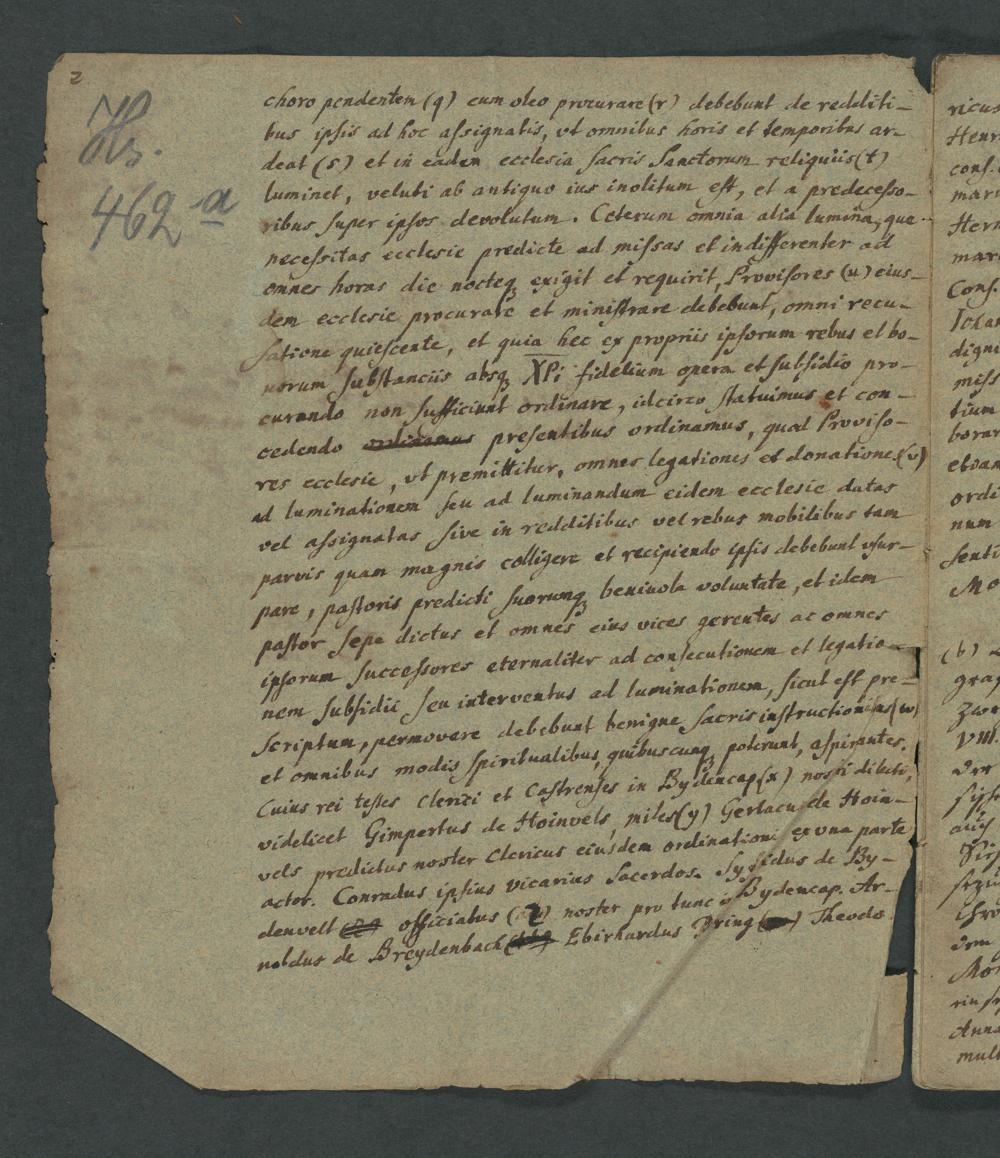 2
Hs.
462 a
choro pendentem (q) cum oleo procurare (r) debebunt de redditi-
bus ipsis ad hoc assignatis, vt omnibus horis et temporibus ar-
deat (s) et in eadem ecclesia sacris Sanctorum reliquiis (t)
luminet, veluti ab antiquo ius inolitum est, et a predecesso-
ribus super ipsos devolutum. Ceterum omnia alia lumina, que
necessitas ecclesie predicte ad missas et indifferenter ad
omnes horas die nocteq₃ exigit et requirit, Provisores (u) eius-
dem ecclesie procurare et ministrare debebunt, omni recu-
satione quiescente, et quia hec ex propriis ipsorum rebus et bo-
norum substanciis absq₃ XPi fidelium opera et subsidio pro-
curando non sufficiunt ordinare, idcirco statuimus et con-
cedendo presentibus ordinamus, quod Proviso-
res ecclesie, vt premittitur, omnes legationes et donationes (v)
ad luminationem seu ad luminandum eidem ecclesie datas
vel assignatas sive in redditibus vel rebus mobilibus tam
parvis quam magnis colligere et recipiendo ipsis debebunt vsur-
pare, pastoris predicti suorumq₃ benivola voluntate, et idem
pastor sepe dictus et omnes eius vices gerentes ac omnes
ipsorum successores eternaliter ad consecutionem et legatio-
nem subsidii seu interventus ad luminationem, sicut est pre-
scriptum, permovere debebunt benigne sacris instructionibus (w)
et omnibus modis spiritualibus, quibuscunq₃ poterunt, aspirantes.
Cuius rei testes Clerici et Castrenses in Bydencap (x) nostri dilecti,
videlicet Gimpertus de Hoinvels, miles (y) Gerlacus de Hoin-
vels predictus noster Clericus eiusdem ordinationi ex vna parte
actor. Conradus ipsius vicarius Sacerdos. Syfridus de By-
denvelt officiatus (z) noster pro tunc in Bydencap. Ar-
noldus de Breydenbach Ebirhardus Dring Theodo
ricus
Henr
cons.
mar
Her
mar
Cons.
digni
miss
tium
borar
etvam
ordi
num
senti
Mo
(b)
grap
Zwe
VIII.
Anna
mult